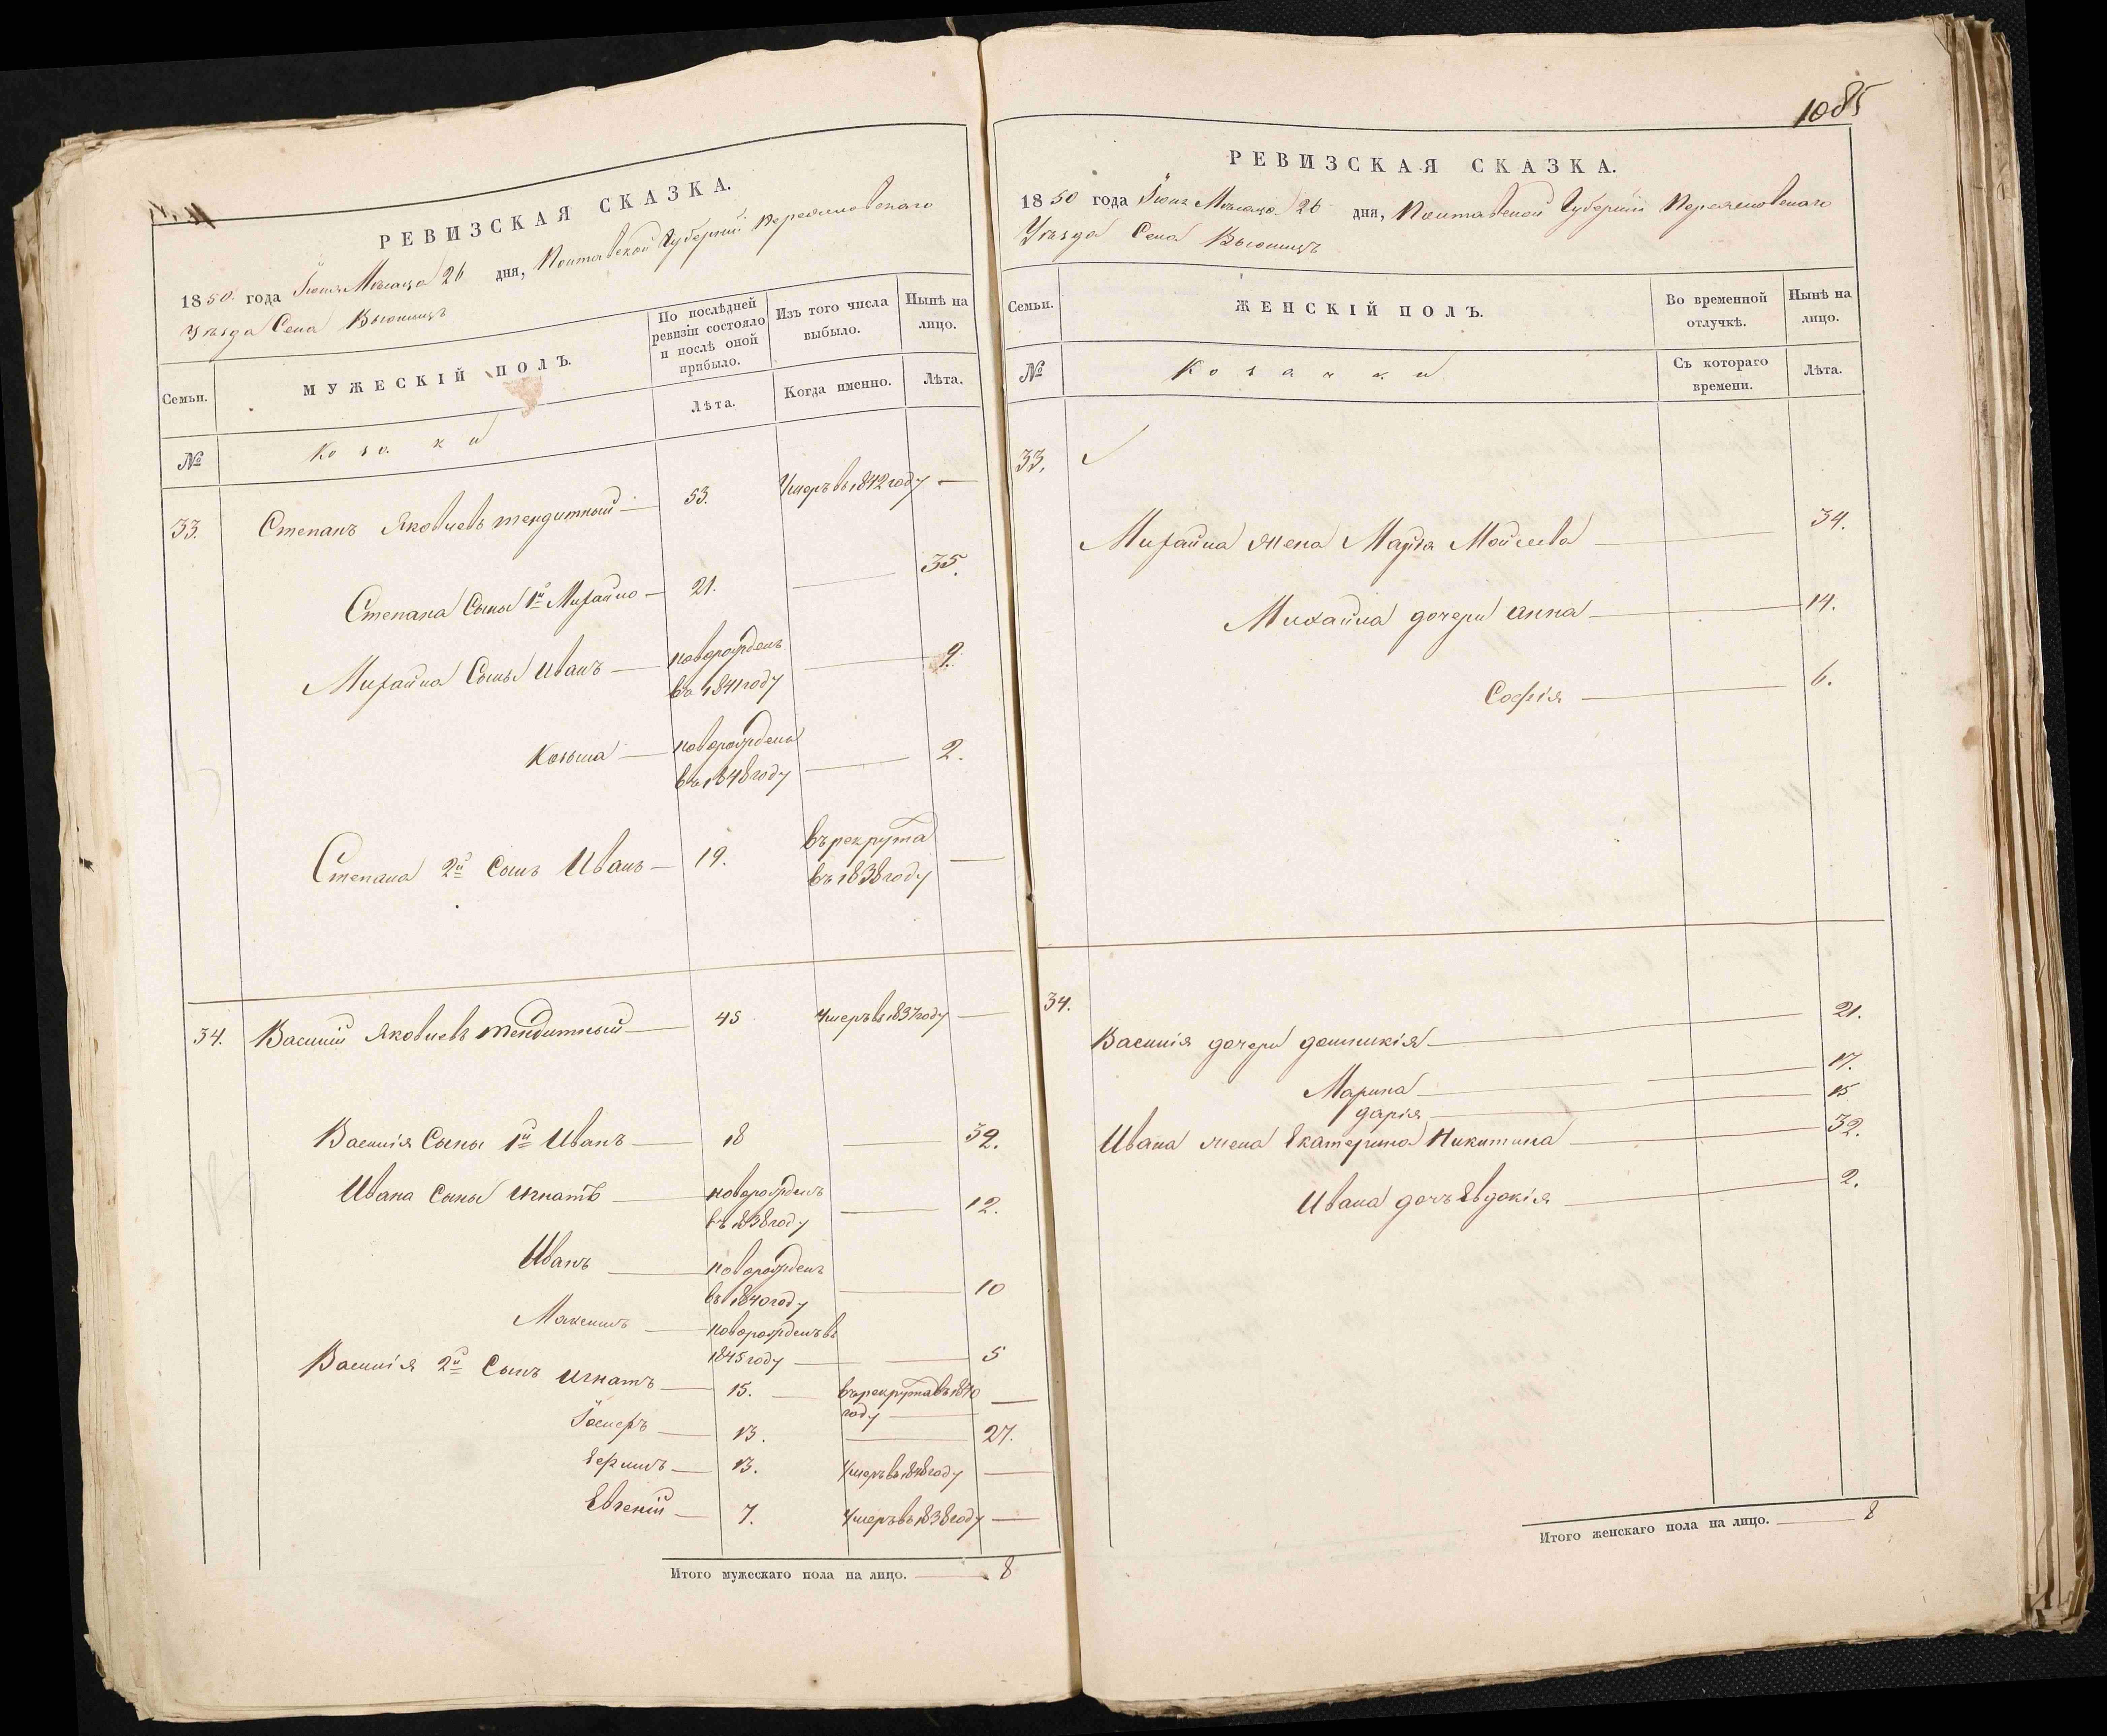 РЕВИЗСКАЯ СКАЗКА.
1850 года Іюня Мѣсяца 26 дня, Полтавской Губерніи Переяславскаго
Уѣзда Села Вьюнищъ
Семьи.
МУЖЕСКІЙ ПОЛЪ.
По послѣдней ревизіи состояло и послѣ оной прибыло.
Изъ того числа выбыло.
Нынѣ на лицо.
№
Козаки
Лѣта.
Когда именно.
Лѣта.
33. Степанъ Яковлевъ Тендитный 53. Умеръ въ 1842 году
Степана Сыны 1й Михайло 21. 35.
Михайла Сыны Иванъ новорожденъ въ 1841 году 9.
Козьма новорожденъ въ 1848 году 2.
Степана 2й Сынъ Иванъ 19. въ рекрута въ 1838 году
34. Василій Яковлевъ Тендитный 45 Умеръ въ 1837 году
Василія Сыны 1й Иванъ 18 32.
Ивана Сыны Игнатъ новорожденъ въ 1838 году 12.
Иванъ новорожденъ въ 1840 году 10
Максимъ новорожденъ въ 1845 году 5
Василія 2й Сынъ Игнатъ 15. въ рекрута въ 1840 году
Іосифъ 13. 27.
Ефимъ 13. Умеръ въ 1848 году
Евгеній 7. Умеръ въ 1838 году
Итого мужескаго пола на лицо. 8
1085
РЕВИЗСКАЯ СКАЗКА.
1850 года Іюня Мѣсяца 26 дня, Полтавской Губерніи Переяславскаго
Уѣзда Села Вьюнищъ
Семьи.
ЖЕНСКІЙ ПОЛЪ.
Во временной отлучкѣ.
Нынѣ на лицо.
№
Козачки
Съ котораго времени.
Лѣта.
33.
Михайла жена Марія Моисеева 34.
Михайла дочери Анна 14.
Софія 6.
34.
Василія дочери 21.
Марина 17.
Дарія 15
Ивана жена Екатерина Никитина 32.
Ивана дочь Евдокія 2.
Итого женскаго пола на лицо. 8